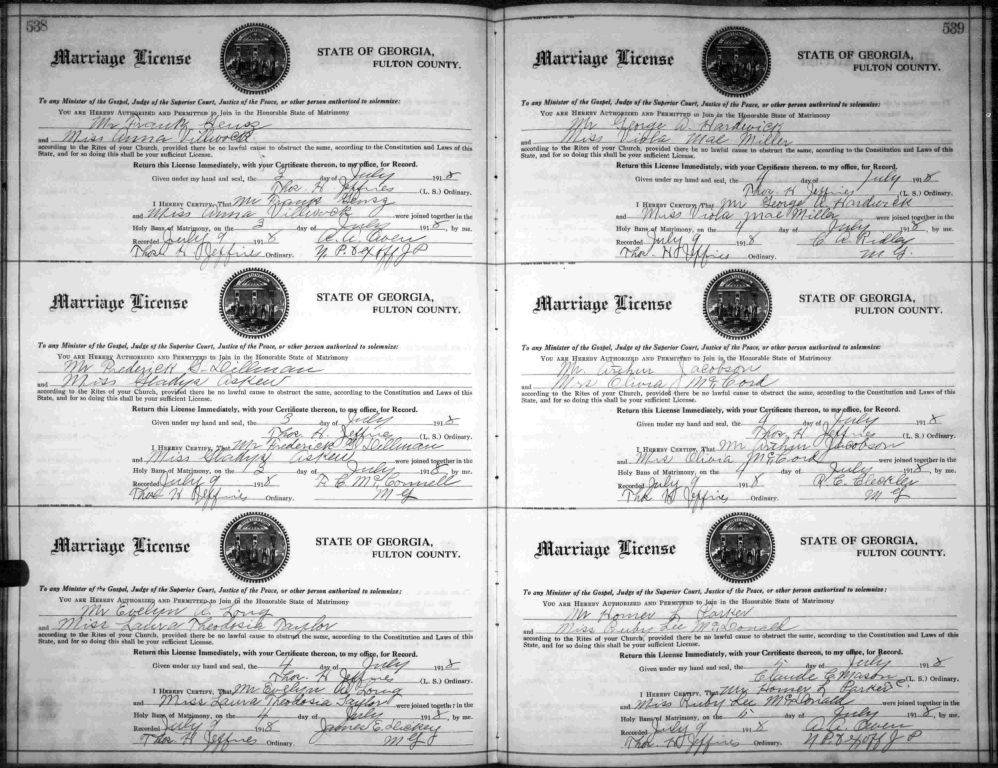 538
Marriage License
STATE OF GEORGIA,
FULTON COUNTY.
To any Minister of the Gospel, Judge of the Superior Court, Justice of the Peace, or other person authorized to solemnize:
YOU ARE HEREBY AUTHORIZED AND PERMITTED to Join in the Honorable State of Matrimony
Mr Frank Hensz
and Miss Anna Villwock
according to the Rites of your Church, provided there be no lawful cause to obstruct the same, according to the Constitution and Laws of this
State, and for so doing this shall be your sufficient License.
Return this License Immediately, with your Certificate thereon, to my office, for Record.
Given under my hand and seal, the 3 day of July 1918
Thos. H Jeffries (L. S.) Ordinary.
I HEREBY CERTIFY, That Mr Frank Hensz
and Miss Anna Villwock were joined together in the
Holy Bans of Matrimony, on the 3 day of July 1918, by me.
Recorded July 9 1918 A. A. Owen
Thos. H Jeffries Ordinary. N. P. & Ex off J P
Marriage License
STATE OF GEORGIA,
FULTON COUNTY.
To any Minister of the Gospel, Judge of the Superior Court, Justice of the Peace, or other person authorized to solemnize:
YOU ARE HEREBY AUTHORIZED AND PERMITTED to Join in the Honorable State of Matrimony
Mr Frederick G. Dillman
and Miss Gladys Askew
according to the Rites of your Church, provided there be no lawful cause to obstruct the same, according to the Constitution and Laws of this
State, and for so doing this shall be your sufficient License.
Return this License Immediately, with your Certificate thereon, to my office, for Record.
Given under my hand and seal, the 3 day of July 1918
Thos. H Jeffries (L. S.) Ordinary.
I HEREBY CERTIFY, That Mr Frederick Dillman
and Miss Gladys Askew were joined together in the
Holy Bans of Matrimony, on the 3 day of July 1918, by me.
Recorded July 9 1918 F. C. McConnell
Thos H Jeffries Ordinary. M G
Marriage License
STATE OF GEORGIA,
FULTON COUNTY.
To any Minister of the Gospel, Judge of the Superior Court, Justice of the Peace, or other person authorized to solemnize:
YOU ARE HEREBY AUTHORIZED AND PERMITTED to Join in the Honorable State of Matrimony
Mr Evelyn A. Long
and Miss Laura Theodosia Taylor
according to the Rites of your Church, provided there be no lawful cause to obstruct the same, according to the Constitution and Laws of this
State, and for so doing this shall be your sufficient License.
Return this License Immediately, with your Certificate thereon, to my office, for Record.
Given under my hand and seal, the 4 day of July 1918
Thos. H Jeffries (L. S.) Ordinary.
I HEREBY CERTIFY, That Mr Evelyn A. Long
and Miss Laura Theodosia Taylor were joined together in the
Holy Bans of Matrimony, on the 4 day of July 1918, by me.
Recorded July 9 1918 James E. Dickey
Thos H Jeffries Ordinary. M G
539
Marriage License
STATE OF GEORGIA,
FULTON COUNTY.
To any Minister of the Gospel, Judge of the Superior Court, Justice of the Peace, or other person authorized to solemnize:
YOU ARE HEREBY AUTHORIZED AND PERMITTED to Join in the Honorable State of Matrimony
Mr George W. Hardwick
and Miss Viola Mae Miller
according to the Rites of your Church, provided there be no lawful cause to obstruct the same, according to the Constitution and Laws of this
State, and for so doing this shall be your sufficient License.
Return this License Immediately, with your Certificate thereon, to my office, for Record.
Given under my hand and seal, the day of July 1918
Thos. H Jeffries (L. S.) Ordinary.
I HEREBY CERTIFY, That Mr George Hardwick
and Miss Viola Mae Miller were joined together in the
Holy Bans of Matrimony, on the 9 day of July 1918, by me.
Recorded July 9 1918 C A Ridley
Thos. H Jeffries Ordinary. M G.
Marriage License
STATE OF GEORGIA,
FULTON COUNTY.
To any Minister of the Gospel, Judge of the Superior Court, Justice of the Peace, or other person authorized to solemnize:
YOU ARE HEREBY AUTHORIZED AND PERMITTED to Join in the Honorable State of Matrimony
Mr. Arthur Jacobson
and Mrs Olivia McCord
according to the Rites of your Church, provided there be no lawful cause to obstruct the same, according to the Constitution and Laws of this
State, and for so doing this shall be your sufficient License.
Return this License Immediately, with your Certificate thereon, to my office, for Record.
Given under my hand and seal, the day of July 1918
Thos. H Jeffries (L. S.) Ordinary.
I HEREBY CERTIFY, That Mr Arthur Jacobson
and Mrs Olivia McCord were joined together in the
Holy Bans of Matrimony, on the 4 day of July 1918, by me.
Recorded July 9 1918 R. E.
Thos H Jeffries Ordinary. M G
Marriage License
STATE OF GEORGIA,
FULTON COUNTY.
To any Minister of the Gospel, Judge of the Superior Court, Justice of the Peace, or other person authorized to solemnize:
YOU ARE HEREBY AUTHORIZED AND PERMITTED to Join in the Honorable State of Matrimony
Mr Homer L Parker
and Miss Ruby Lee McDonald
according to the Rites of your Church, provided there be no lawful cause to obstruct the same, according to the Constitution and Laws of this
State, and for so doing this shall be your sufficient License.
Return this License Immediately, with your Certificate thereon, to my office, for Record.
Given under my hand and seal, the 5 day of July 1918
Claude C Mason (L. S.) Ordinary.
I HEREBY CERTIFY, That Mr Homer L Parker
and Miss Ruby Lee McDonald were joined together in the
Holy Bans of Matrimony, on the 5 day of July 1918, by me.
Recorded July 9 1918 A. A. Owen
Thos. H Jeffries Ordinary. N P. & Ex off J P